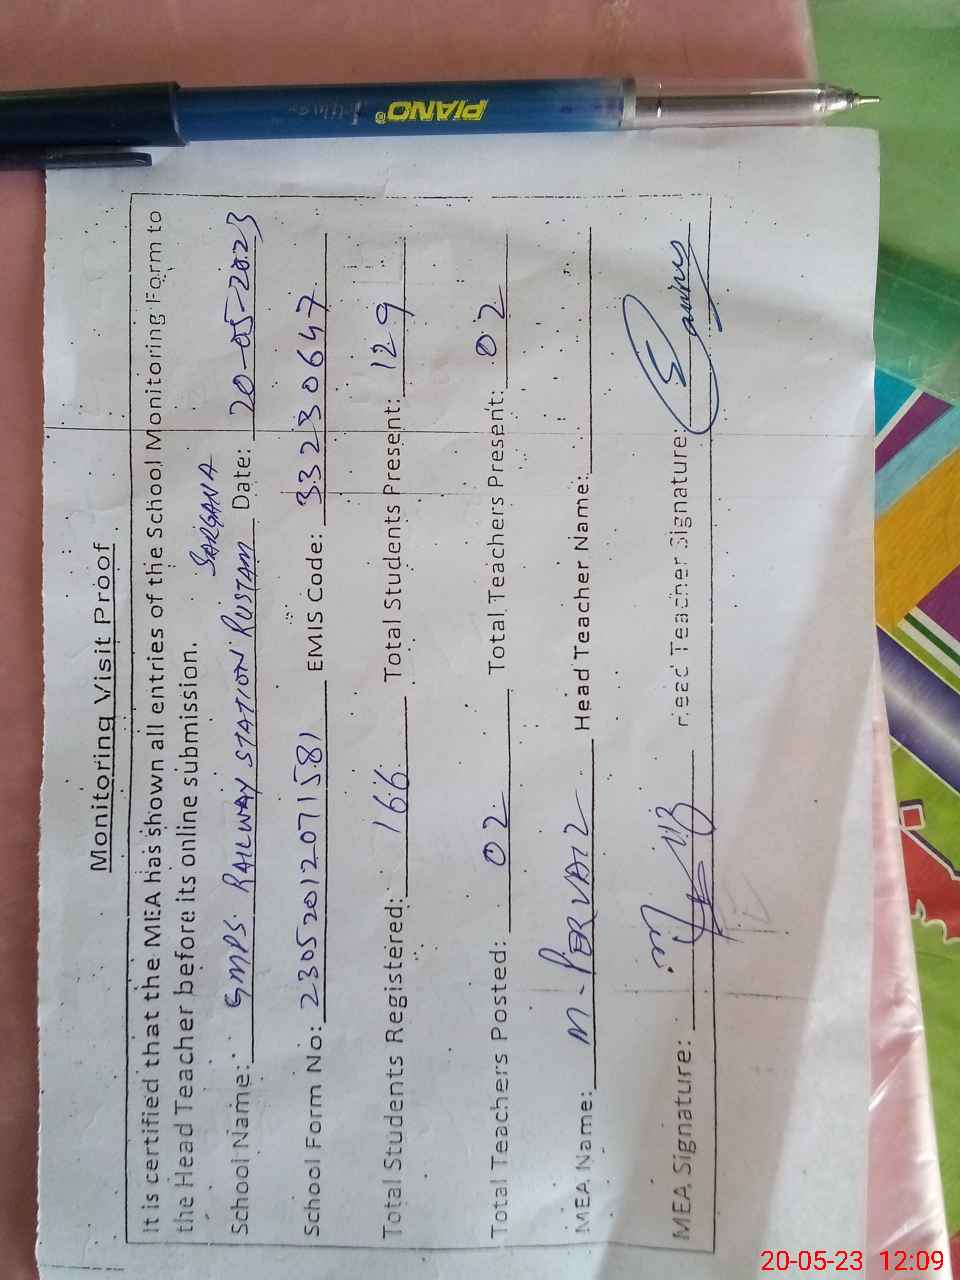 PIANO
Monitoring Visit Proof
It is certified that the MEA has shown all entries of the School Monitoring Form to
the Head Teacher before its online submission.
School Name: GMPS RAILWAY STATION RUSTAM SARGANA Date: 20-05-2023
School Form No: 23052012071581 EMIS Code: 33230647
Total Students Registered: 166 Total Students Present: 129
Total Teachers Posted: 02 Total Teachers Present: 02
MEA Name: M. PERVAIZ Head Teacher Name:
MEA Signature: Head Teacher Signature:
20-05-23 12:09